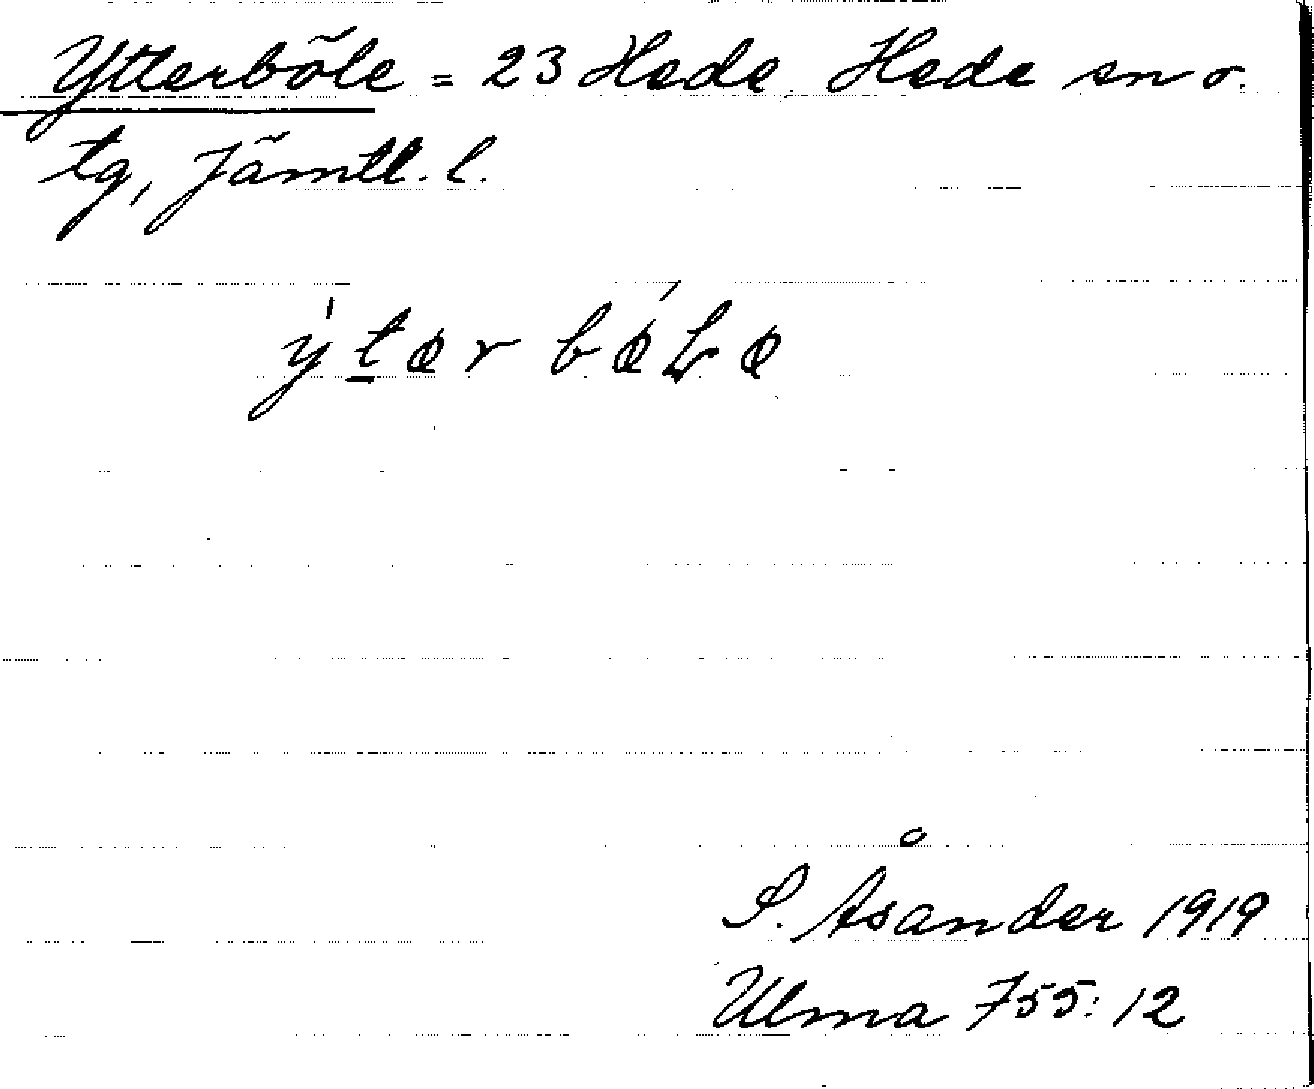 Ytterböle = 23 Hede, Hede sn o.
tg, Jämtl. l.
ýt̲ər bǿLə
S. Åsander 1919
Ulma 755:12